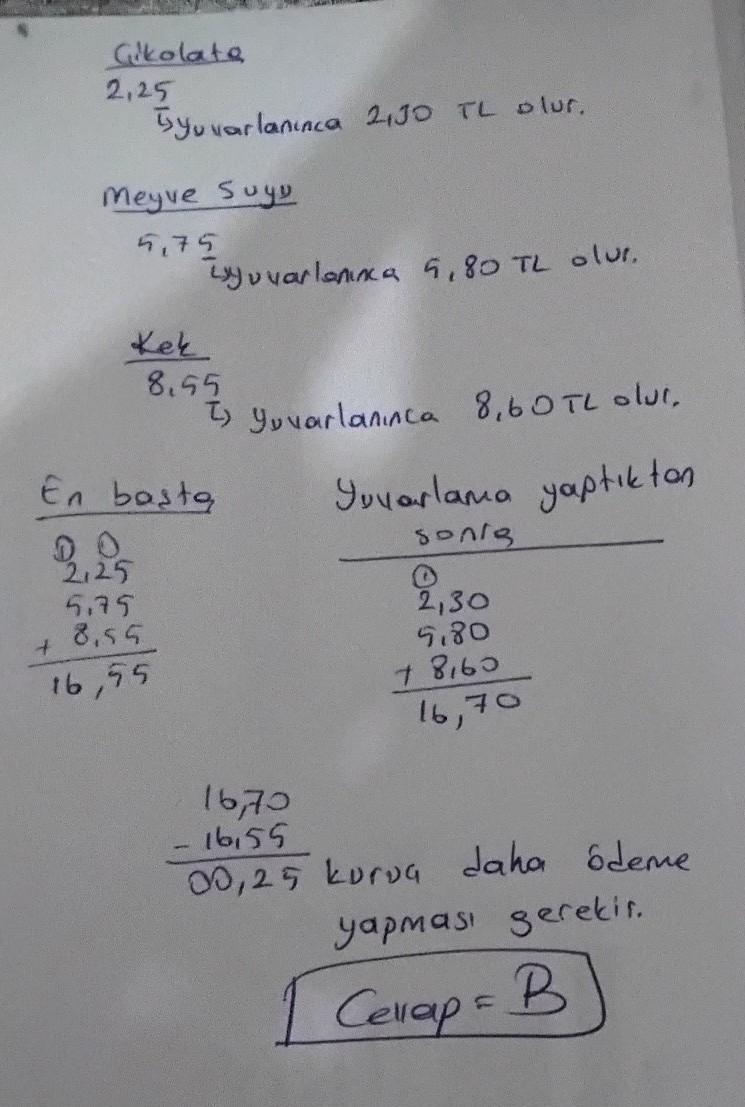 Çikolata
2,25
↳yuvarlanınca 2,30 TL olur.
Meyve Suyu
5,75
↳yuvarlanınca 5,80 TL olur.
Kek
8,55
↳ yuvarlanınca 8,60 TL olur.
En başta
① ①
2,25
5,75
+ 8,55
16,55
Yuvarlama yaptıktan
sonra
①
2,30
5,80
+ 8,60
16,70
16,70
- 16,55
00,25 kuruş daha ödeme
yapması gerekir.
Cevap = B